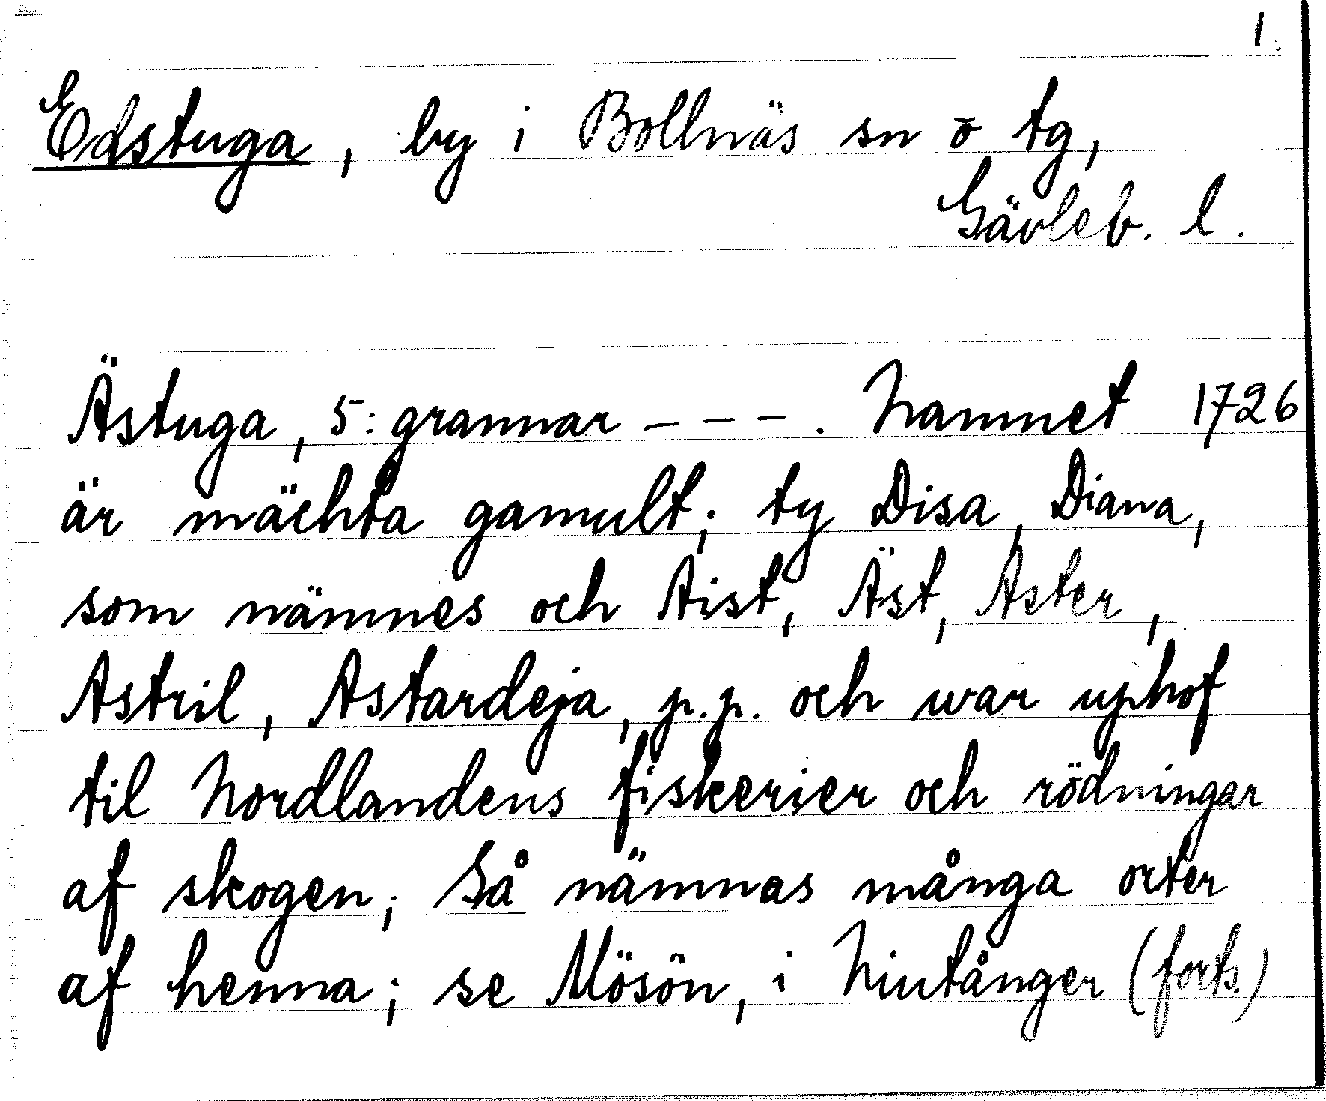 1.
Edstuga, by i Bollnäs sn o tg,
Gävleb. l.
Ästuga, 5: grannar - - - . Namnet 1726
är mächta gamult; ty Disa, Diana,
som nämnes och Aist, Äst, Aster,
Astril, Astardeja, p.p. och war uphof
til Nordlandens fiskerier och rödningar
af skogen; Så nämnas många orter
af henna; se Mösön, i Niutånger (forts.)